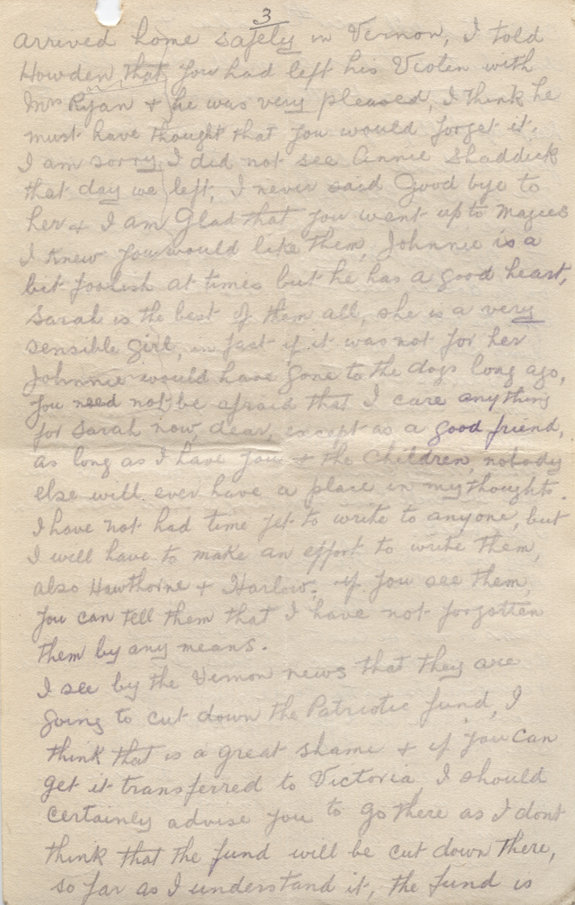 3
arrived home safely in Vernon, I told
Howden that you had left his Violen with
Mrs Ryan & he was very pleased, I think he
must have thought that you would forget it.
I am sorry I did not see Annie Shaddick
that day we left, I never said Good bye to
her & I am Glad that you went up to Magees
I knew you would like them, Johnnie is a
bit foolish at times but he has a good heart,
Sarah is the best of them all, she is a very
sensible girl, in fact if it was not for her
Johnnie would have gone to the dogs long ago,
you need not be afraid that I care anything
for Sarah now, dear, except as a good friend,
as long as I have you & the Children, nobody
else will ever have a place in my thoughts.
I have not had time yet to write to anyone, but
I will have to make an effort to write them,
also Hawthorne & Harlow, if you see them,
you can tell them that I have not forgotten
them by any means.
I see by the Vernon news that they are
going to cut down the Patriotic fund, I
think that is a great shame & if you can
get it transferred to Victoria, I should
certainly advise you to go there as I dont
think that the fund will be cut down there,
so far as I understand it, the fund is